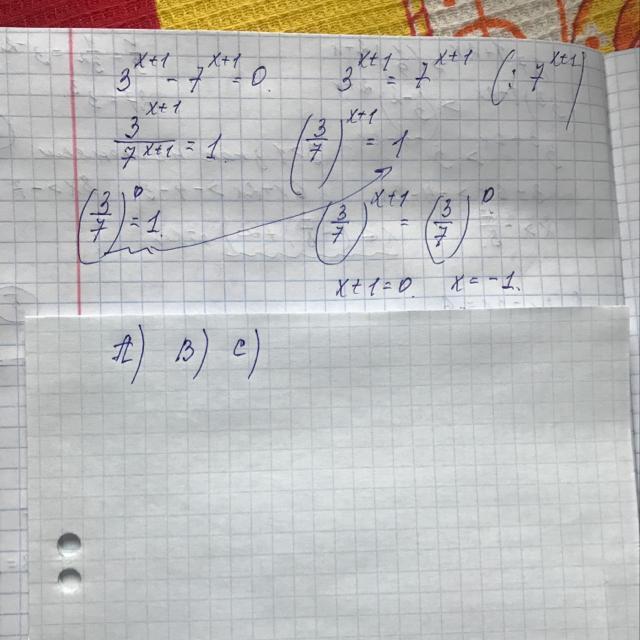 3^{x+1} - 7^{x+1} = 0. 3^{x+1} = 7^{x+1} (: 7^{x+1})
\frac{3^{x+1}}{7^{x+1}} = 1. \left(\frac{3}{7}\right)^{x+1} = 1
\left(\frac{3}{7}\right)^0 = 1. \left(\frac{3}{7}\right)^{x+1} = \left(\frac{3}{7}\right)^0
x+1=0. x=-1.
A) B) C)